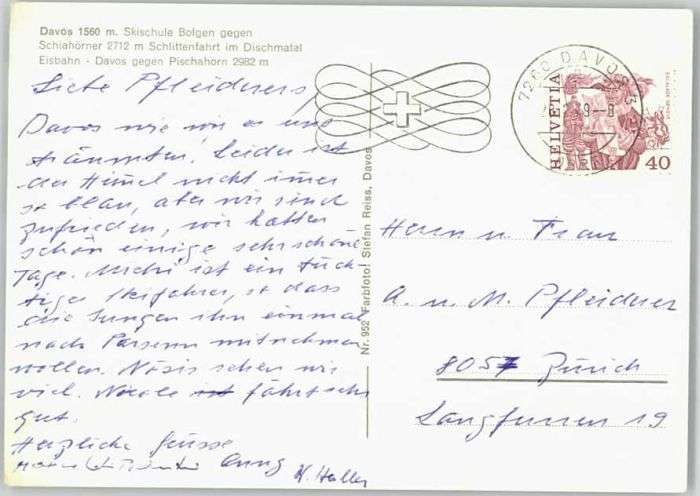 Davos 1560 m. Skischule Bolgen gegen
Schiahörner 2712 m Schlittenfahrt im Dischmatal
Eisbahn - Davos gegen Pischahorn 2982 m
Liebe Pfleiderers,
Davos wie wir es uns
träumten. Leider ist
der Himmel nicht immer
so blau, aber wir sind
zufrieden, wir hatten
schon einige sehr schöne
Tage. Michi ist ein tüch-
tiger Skifahrer, so dass
die Jungen ihn einmal
nach Parsenn mitnehmen
wollen. Nösis sehen wir
viel. Nicole fährt sehr
gut.
Herzliche Grüsse
Anny
W. Haller
Nr. 952 Farbfoto! Stefan Reiss, Davos
7260 DAVOS 3
HELVETIA
40
Herrn u. Frau
A. u. M. Pfleiderer
8057 Zürich
Langfurren 19